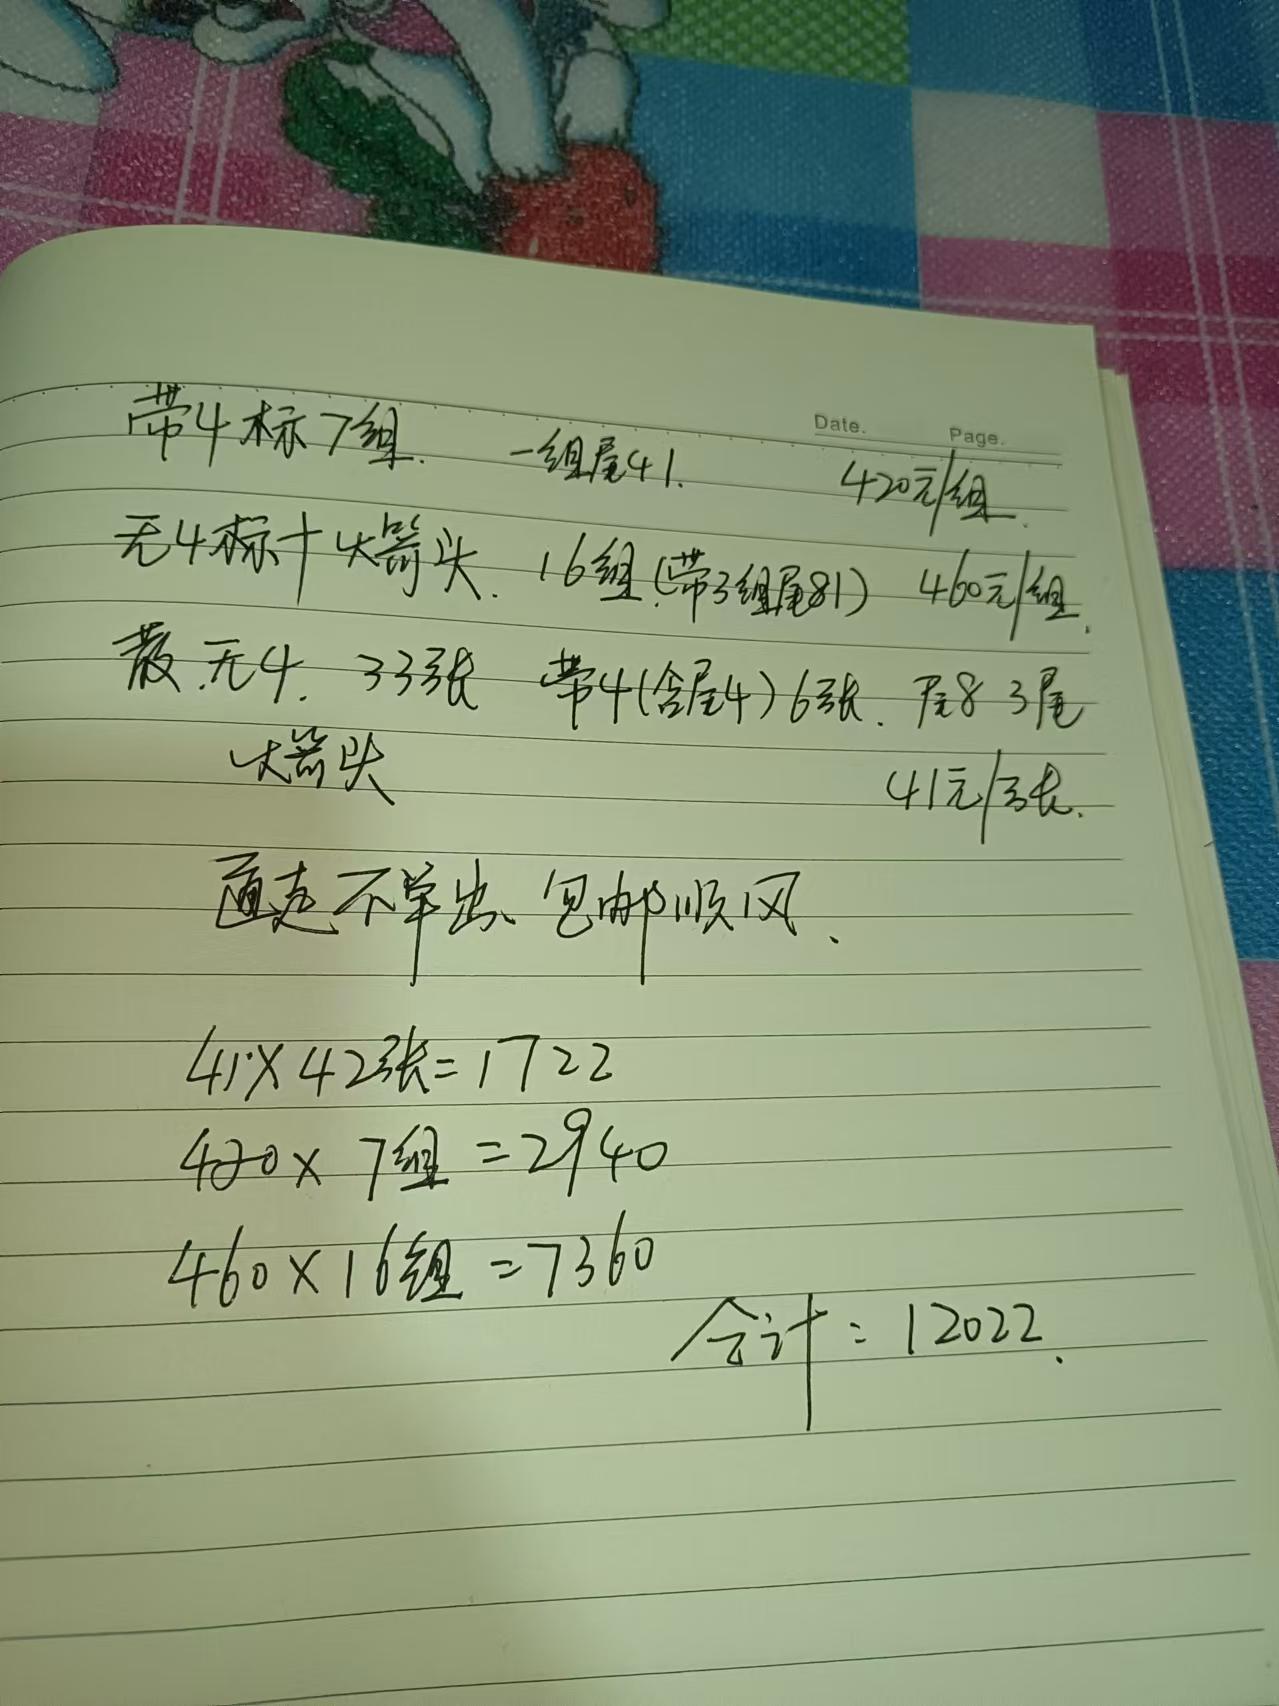 Date. Page.
带4标7组. 一组尾41. 420元/组.
无4标十大箭头. 16组(带3组尾81) 460元/组.
散.无4. 33张 带4(含尾4)6张. 尾8 3尾
大箭头 41元/张.
通走不单出、包邮顺风.
41×42张=1722
420×7组=2940
460×16组=7360
合计=12022.